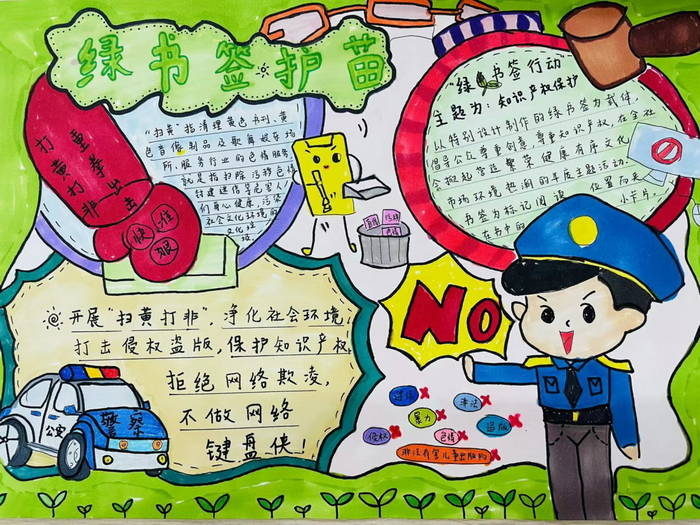 绿书签护苗
重拳出击
打黄打非
快
准
狠
"扫黄"指清理黄色书刊、黄
色音像制品及歌舞娱乐场
所、服务行业的色情服务,
就是指扫除污秽色情
封建迷信等危害人
们身心健康、污染
社会文化环境的
文化垃圾
"绿书签行动"
主题为:知识产权保护
以特别设计制作的绿书签为载体,
倡导公众尊重创意,尊重知识产权,在全社
会掀起营造繁荣健康有序文化
市场环境热潮的年度主题活动。
书签为标记阅读
位置而夹
在书中的
小卡片。
NO
开展"扫黄打非",净化社会环境,
打击侵权盗版,保护知识产权,
拒绝网络欺凌,
不做网络
键盘侠!
公安
警察
暴力
侵权
色情
盗版